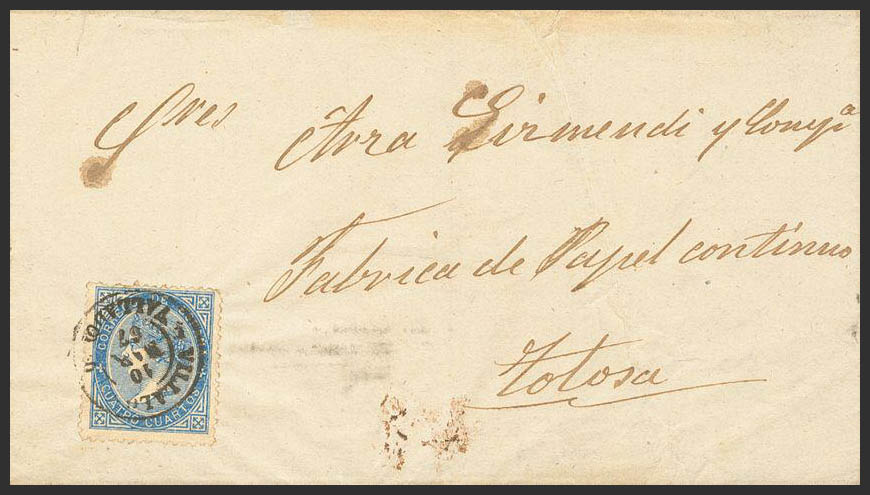 Sres Arra Eizmendi y Compª
Fabrica de Papel continuo
Tolosa
CORREOS DE
10
67
VILLAL
CUATRO CUARTOS